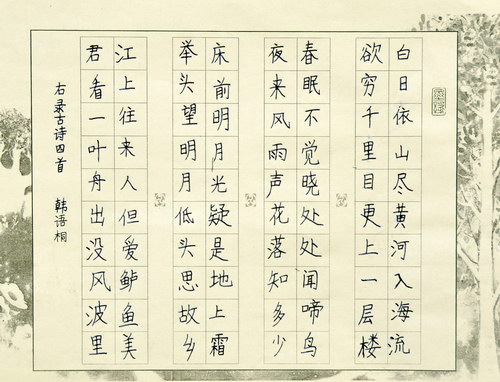 白日依山尽黄河入海流
欲穷千里目更上一层楼
春眠不觉晓处处闻啼鸟
夜来风雨声花落知多少
床前明月光疑是地上霜
举头望明月低头思故乡
江上往来人但爱鲈鱼美
君看一叶舟出没风波里
右录古诗四首 韩语桐